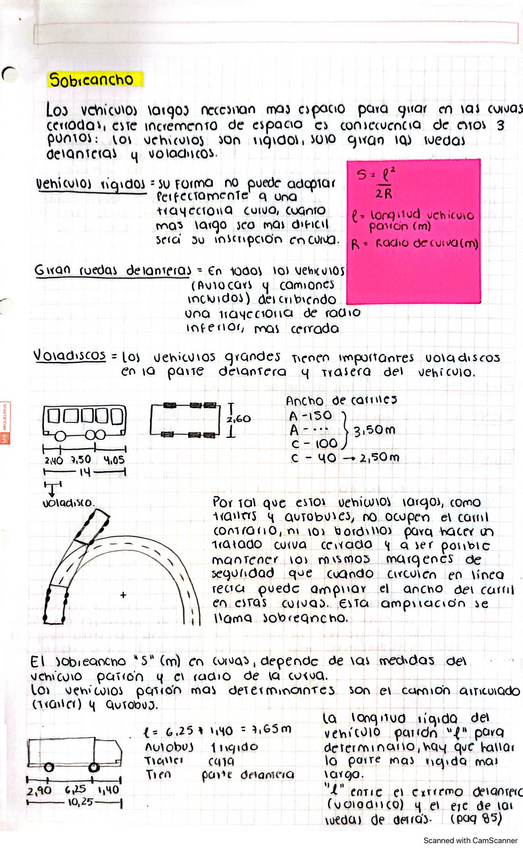 Sobreancho
Los vehiculos largos necesitan mas espacio para girar en las curvas
cerradas, este incremento de espacio es consecuencia de estos 3
puntos: los vehiculos son rigidos, solo giran las ruedas
delanteras y voladiscos.
Vehiculos rigidos = su forma no puede adoptar
perfectamente a una
trayectoria curva, cuanto
mas largo sea mas dificil
será su inscripción en curva.
S = l²
2R
l = longitud vehiculo
patrón (m)
R = Radio de curva (m)
Giran ruedas delanteras = En todos los vehiculos
(Autocars y camiones
incluidos) describiendo
una trayectoria de radio
inferior, mas cerrada
Voladiscos = Los vehiculos grandes tienen importantes voladiscos
en la parte delantera y trasera del vehiculo.
2,60
2,40 7,50 4,05
14
voladisco.
Ancho de carriles
A - 150
A - ...
C - 100
3,50m
C - 40 → 2,50m
Por tal que estos vehiculos largos, como
trailers y autobuses, no ocupen el carril
contrario, ni los bordillos para hacer un
tratado curva cerrado y a ser posible
mantener los mismos margenes de
seguridad que cuando circulen en linea
recta puede ampliar el ancho del carril
en estas curvas. Esta ampliación se
llama sobreancho.
El sobreancho "S" (m) en curvas, depende de las medidas del
vehiculo patrón y el radio de la curva.
Los vehiculos patrón mas determinantes son el camión articulado
(trailer) y autobus.
l = 6,25 + 1,40 = 7,65m
Autobus 1 rigido
Trailer caja
Tren parte delantera
2,90 6,25 1,40
10,25
La longitud rigida del
vehiculo patrón "l" para
determinarlo, hay que hallar
la parte mas rigida mas
larga.
"l" entre el extremo delantero
(voladisco) y el eje de las
ruedas de detras. (pag 85)
Scanned with CamScanner